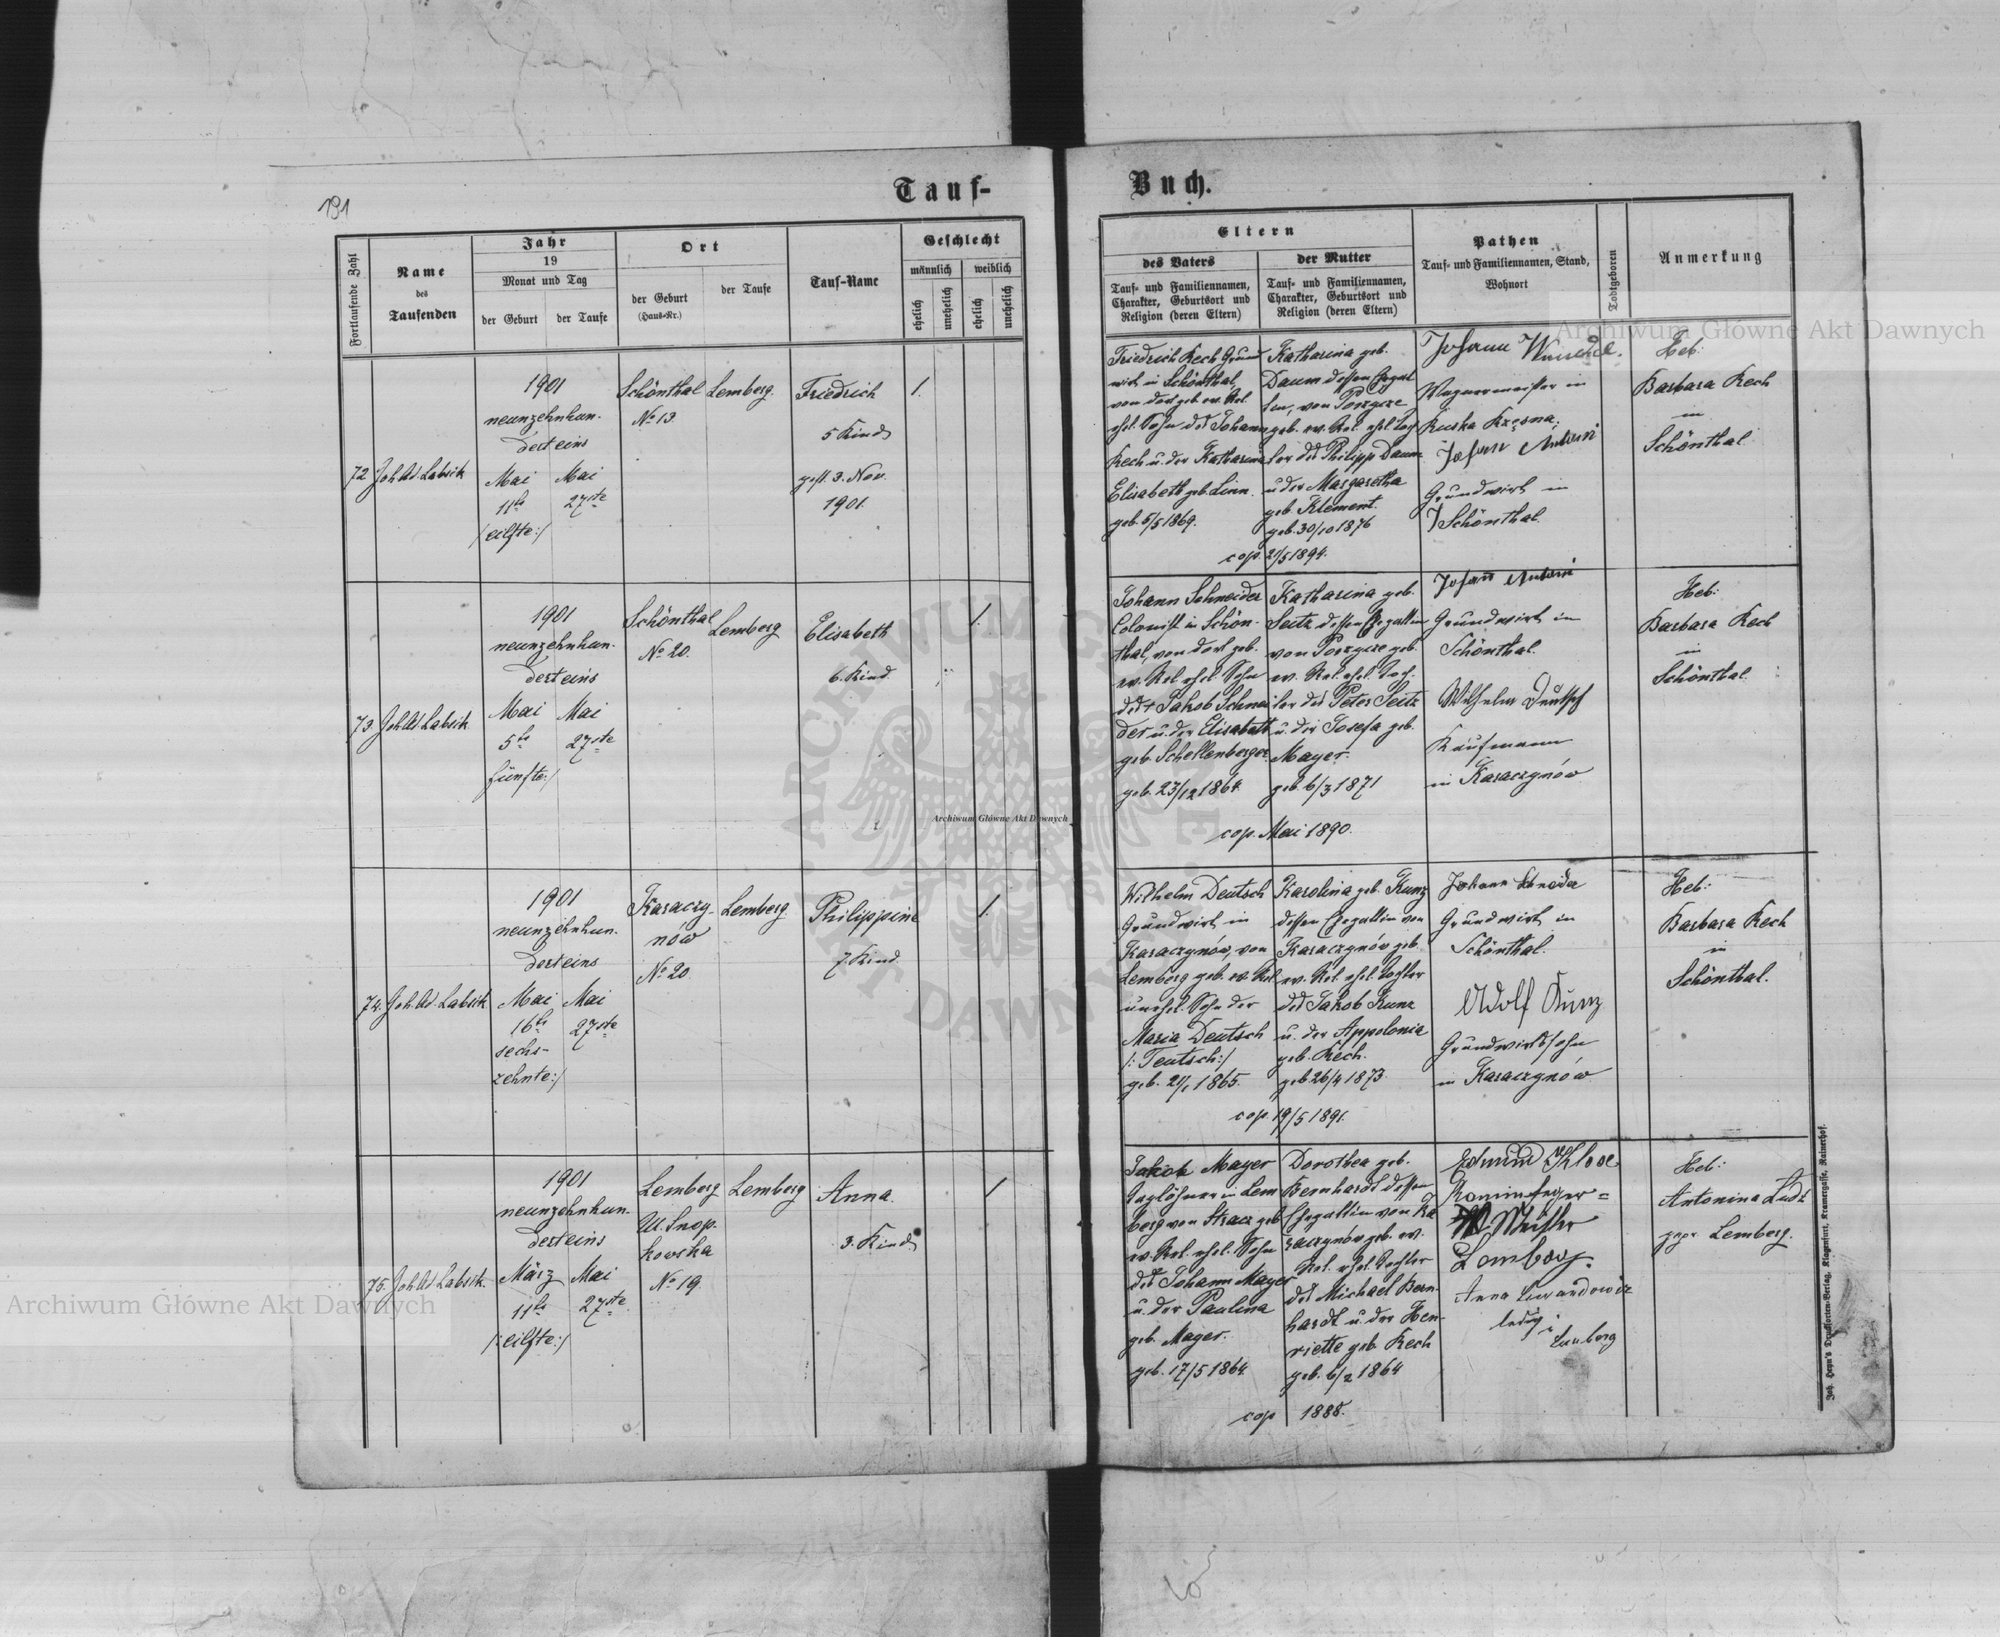 191
Tauf-
Buch.
Fortlaufende Zahl
Name
des
Taufenden
Jahr
19
Monat und Tag
der Geburt
der Taufe
Ort
der Geburt
(Haus-Nr.)
der Taufe
Tauf-Name
Geschlecht
männlich
weiblich
ehelich
unehelich
ehelich
unehelich
Eltern
des Vaters
Tauf- und Familiennamen,
Charakter, Geburtsort und
Religion (deren Eltern)
der Mutter
Tauf- und Familiennamen,
Charakter, Geburtsort und
Religion (deren Eltern)
Pathen
Tauf- und Familiennamen, Stand,
Wohnort
Todtgeboren
Anmerkung
72
1901
neunzehnhun-
derteins
Mai
11te
/eilfte:/
Mai
27ste
Schönthal
No 13.
Lemberg.
Friedrich
5 Kind
gest. 3. Nov.
1901.
1.
Friedrich Kech Grund
wirt in Schönthal,
von dort geb. ev. Rel.
ehel. Sohn des Johann
Kech u. der Katharina
Elisabeth geb. Linn.
geb. 5/5 1869.
Katharina geb.
Daum dessen Gegat
tin, von Porzycze
geb. ev. Rel. ehel. Toch
ter des Philipp Daum
u. der Margaretha
geb. Klement.
geb. 30/10 1876
cop. 21/5 1894.
Johann
Wagnermeister in
Johann Antoni
Grundwirt in
Schönthal.
Heb:
Barbara Kech
in
Schönthal
73
1901
neunzehnhun-
derteins
Mai
5te
fünfte:/
Mai
27ste
Schönthal
No 20.
Lemberg
Elisabeth
6. Kind
1.
Johann Schneider
Colonist in Schön-
thal, von dort geb.
ev. Rel. ehel. Sohn
des + Jakob Schnei
der u. der Elisabeth
geb. Schellenberger
geb. 23/12 1864.
Katharina geb.
Seitz dessen Egattin
von Porzycze geb.
ev. Rel. ehel. Toch.
ter des Peter Seitz
u. der Josefa geb.
Mayer.
geb. 6/3 1871
cop. Mai 1890.
Johann Antoni
Grundwirt in
Schönthal.
Wilhelm Deutsch
Kaufmann
in Karaczynów
Heb:
Barbara Kech
in
Schönthal
74.
1901
neunzehnhun-
derteins
Mai
16te
sechs-
zehnte:/
Mai
27ste
Karaczy-
nów
No 20
Lemberg
Philippine
7. Kind
1.
Wilhelm Deutsch
Grundwirt in
Karaczynów, von
Lemberg geb. ev. Rel.
unehel. Sohn der
Maria Deutsch
/: Teutsch:/
geb. 21/1 1865.
Karolina geb. Kunz
dessen Egattin von
Karaczynów geb.
ev. Rel. ehel. Tochter
des Jakob Kunz
u. der Appolonia
geb. Kech.
geb 26/4 1873.
cop. 19/5 1891.
Johann
Grundwirt in
Schönthal.
Adolf Kunz
Grundwirtssohn
in Karaczynów
Heb:
Barbara Kech
in
Schönthal.
75.
1901
neunzehnhun-
derteins
März
11te
/:eilfte:/
Mai
27ste
Lemberg
Ul. Snop-
kowska
No 19.
Lemberg
Anna.
3. Kind
1
Jakob Mayer
Taglöhner in Lem
berg von geb
ev. Rel. ehel. Sohn
des Johann Mayer
u. der Paulina
geb. Mayer.
geb. 17/5 1864.
Dorothea geb.
Bernhardt dessen
Egattin von Ka
raczynów geb. ev.
Rel. ehel. Tochter
des Michael Bern-
hardt u. der Hen-
riette geb. Kech
geb. 6/2 1864
cop 1888.
Edmund Klose
Kaminfeger=
Meister
Lemberg.
Anna
ledig
Lemberg
Heb:
Antonina
Lemberg.
Joh. Heyn's Drucksorten-Verlag, Klagenfurt, Kramergasse, Rainerhof.
Archiwum Główne Akt Dawnych
Archiwum Główne Akt Dawnych
Archiwum Główne Akt Dawnych